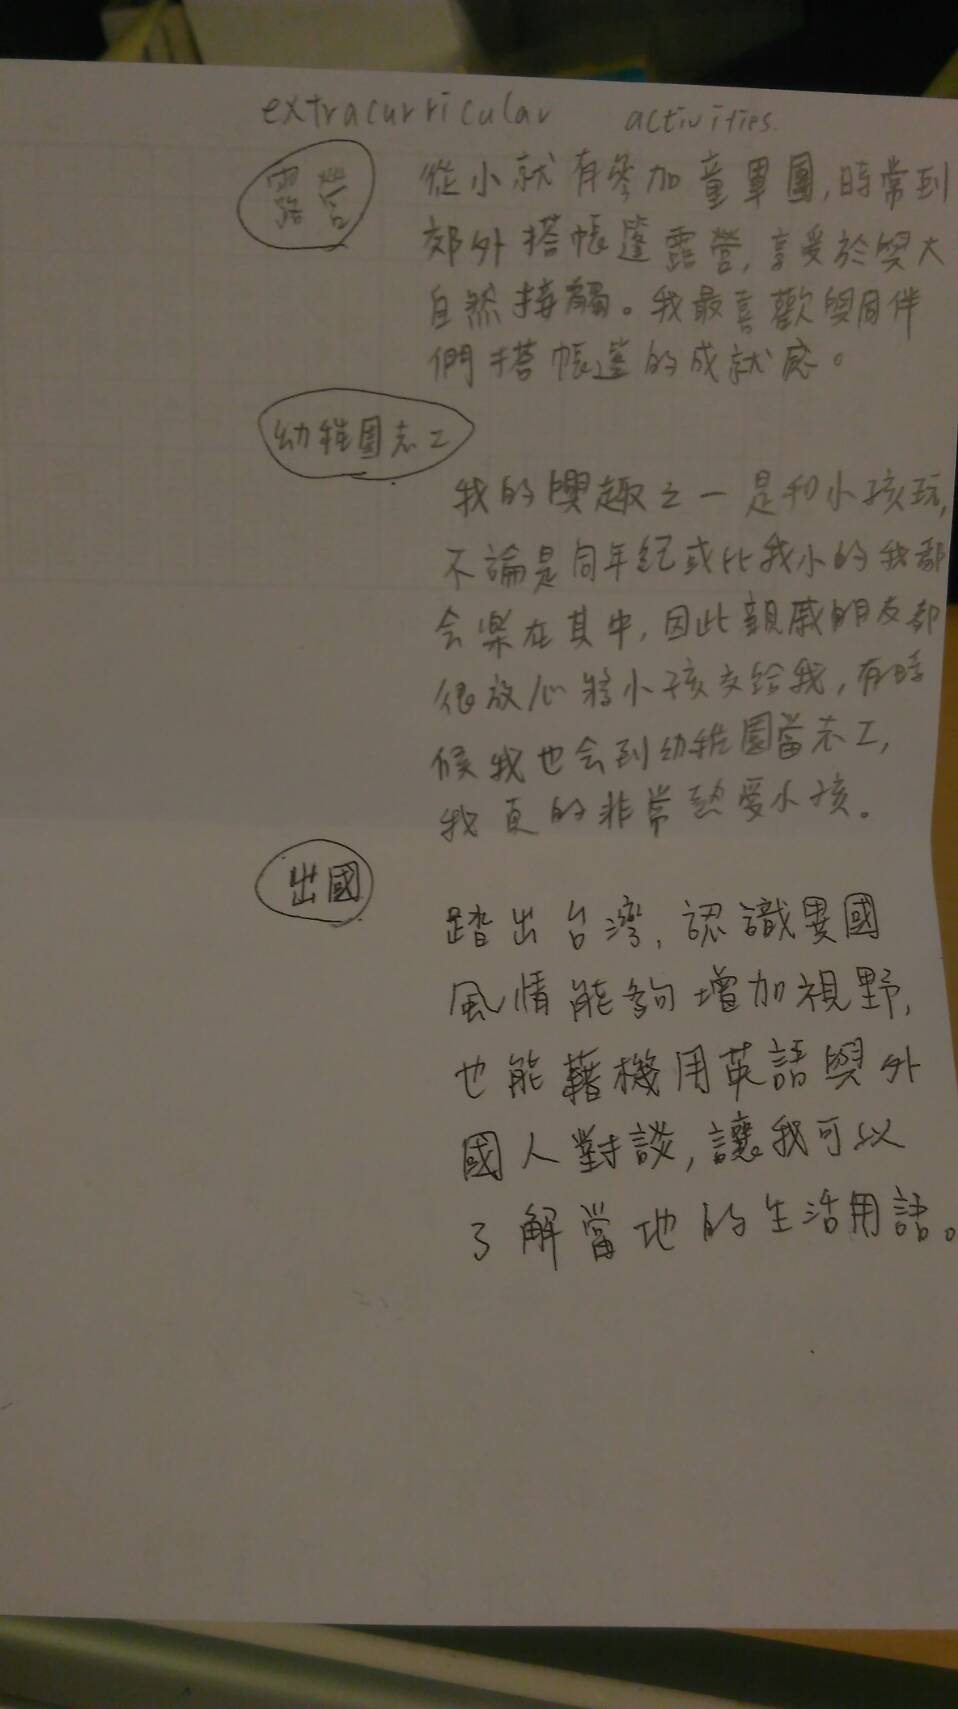 extracurricular activities
露營
從小就有參加童軍團,時常到
郊外搭帳篷露營,享受於與大
自然接觸。我最喜歡與同伴
們搭帳篷的成就感。
幼稚園志工
我的興趣之一是和小孩玩,
不論是同年紀或比我小的我都
会樂在其中,因此親戚朋友都
很放心將小孩交給我,有時
候我也会到幼稚園當志工,
我真的非常熱愛小孩。
出國
踏出台灣,認識異國
風情能夠增加視野,
也能藉機用英語與外
國人對談,讓我可以
了解當地的生活用語。